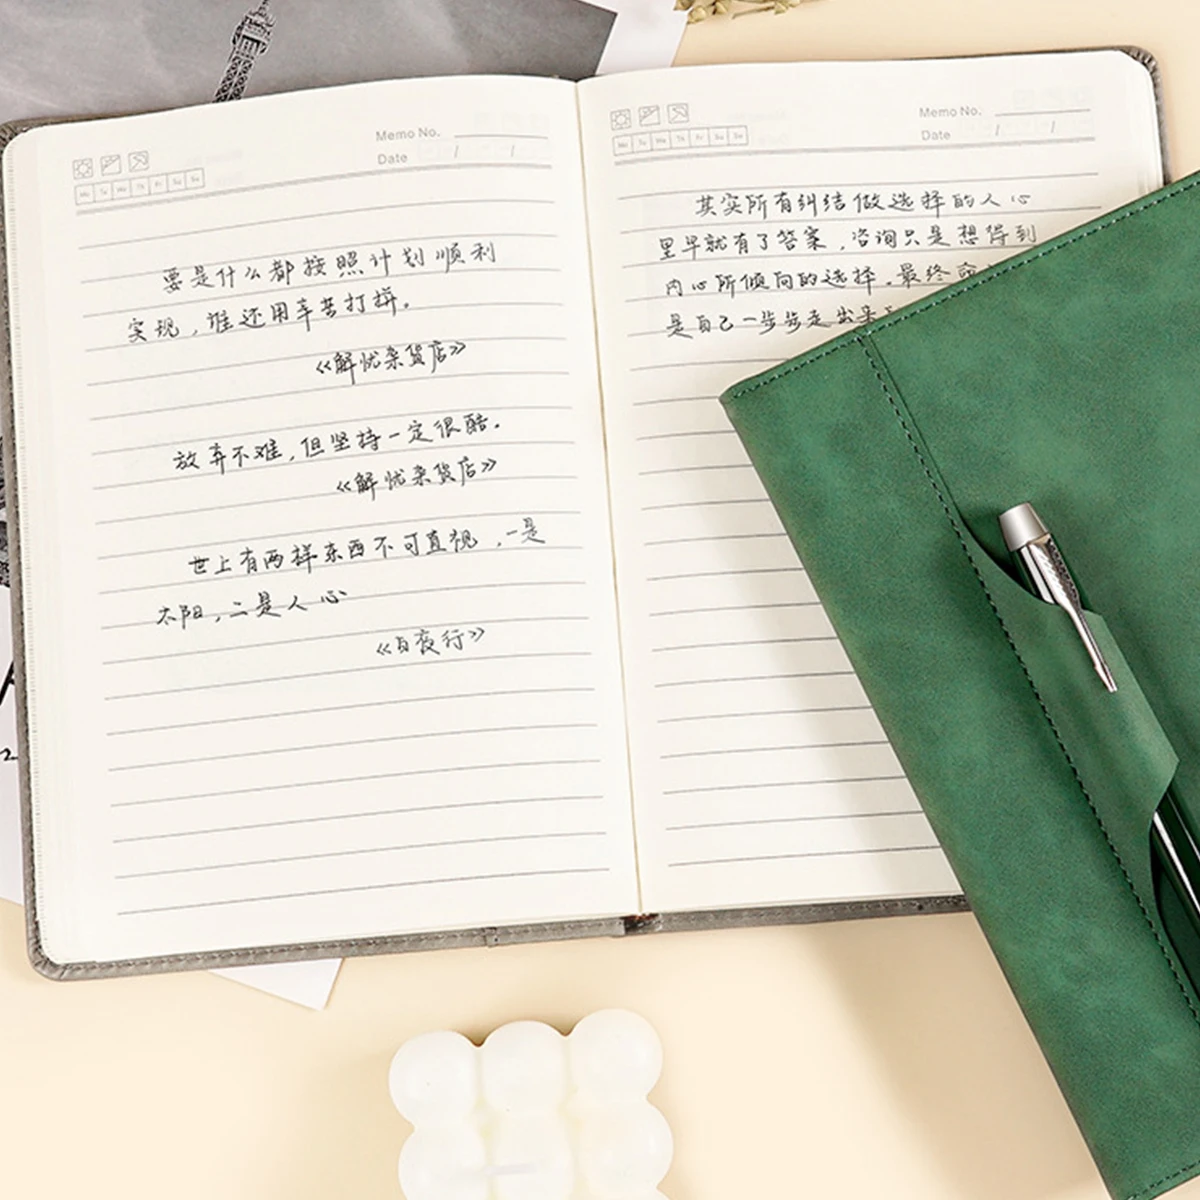 Memo No.
Date / /
Mo Tu We Th Fr Sa Su
要是什么都按照计划顺利
实现，谁还用辛苦打拼。
《解忧杂货店》
放弃不难，但坚持一定很酷。
《解忧杂货店》
世上有两样东西不可直视，一是
太阳，二是人心
《白夜行》
Memo No.
Date / /
Mo Tu We Th Fr Sa Su
其实所有纠结做选择的人心
里早就有了答案，咨询只是想得到
内心所倾向的选择。最终
是自己一步步走出来